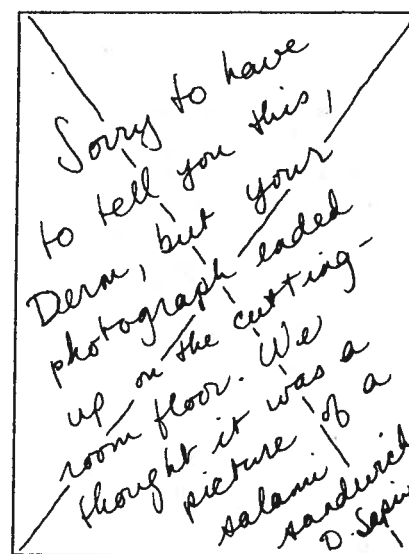 Sorry to have
to tell you this,
Derm, but your
photograph ended
up on the cutting-
room floor. We
thought it was a
picture of a
salami
sandwich
D. Sapir